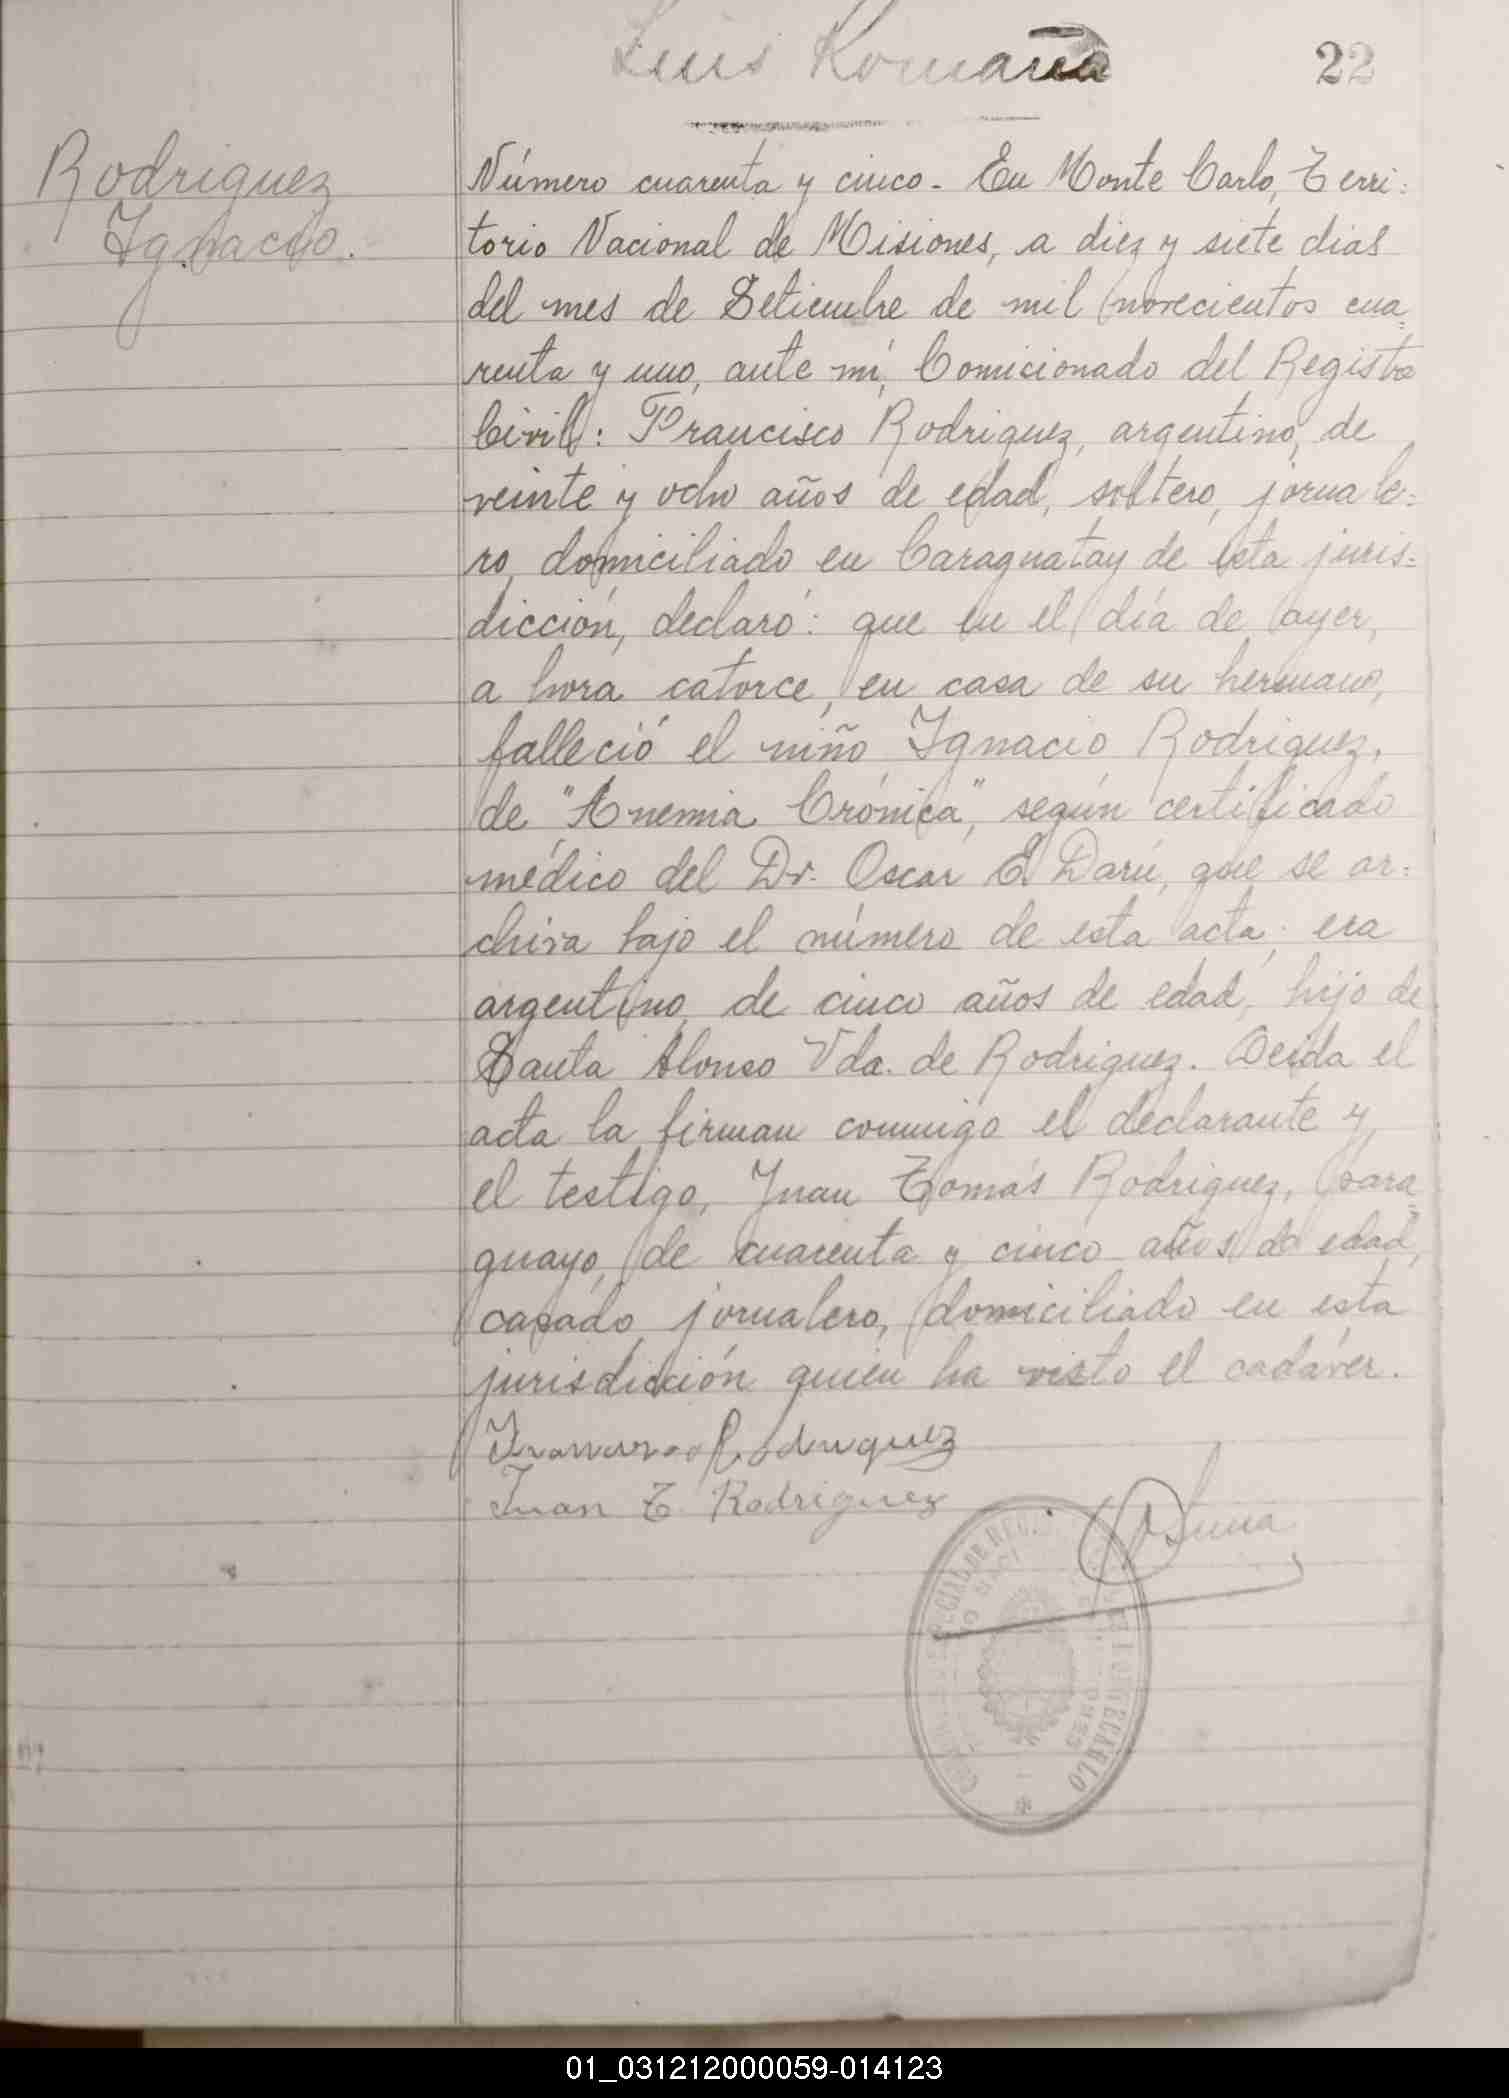 Luis Romaña
22
Rodriguez
Ignacio.
Número cuarenta y cinco- En Monte Carlo, Terri:
torio Nacional de Misiones, a diez y siete dias
del mes de Setiembre de mil novecientos cua=
renta y uno, ante mí, Comicionado del Registro
Civil: Francisco Rodriguez, argentino, de
veinte y ocho años de edad, soltero, jornale-
ro, domiciliado en Caraguatay de esta juris=
dicción, declaró: que en el día de ayer,
a hora catorce, en casa de su hermano,
falleció el niño Ignacio Rodriguez,
de "Anemia Crónica", según certificado
médico del Dr. Oscar E. Darú, que se ar:
chiva bajo el número de esta acta; era
argentino, de cinco años de edad, hijo de
Santa Alonso Vda. de Rodriguez. Leida el
acta la firman conmigo el declarante y
el testigo, Juan Tomás Rodriguez, para=
guayo, de cuarenta y cinco años de edad,
casado, jornalero, domiciliado en esta
jurisdicción quien ha visto el cadáver.
Francisco Rodriguez
Juan T. Rodriguez
01_031212000059-014123